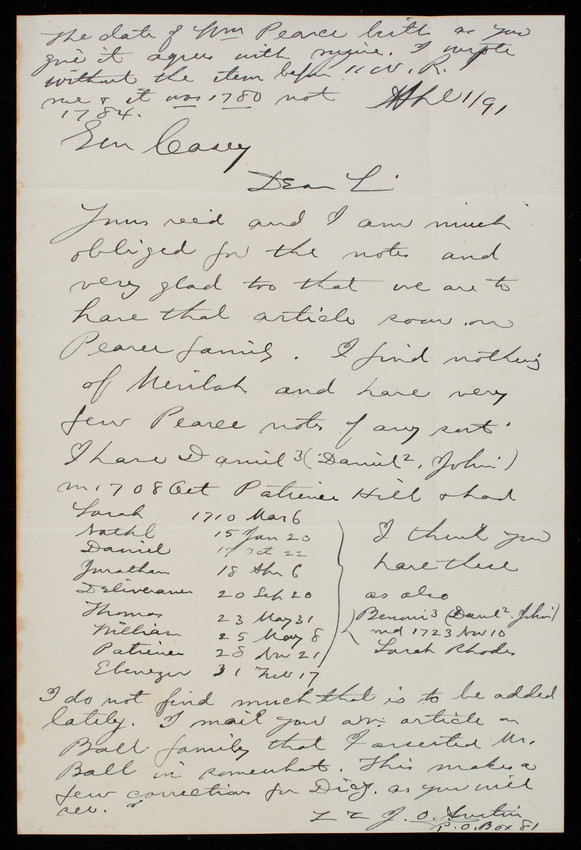 The date of Wm Pearce birth as you
give it agrees with mine. I wrote
without the item before N. R.
me & it was 1780 not
1784.
Apl 1/91
Gen Casey
Dear Sir
Yours rec'd and I am much
obliged for the notes and
very glad too that we are to
have that article soon on
Pearce family. I find nothing
of Merilah and have very
few Pearce notes of any sort.
I have Daniel 3 (Daniel 2, John 1)
m 1708 Oct Patience Hill & had
Sarah 1710 Mar 6
Nathl 15 Jan 20
Daniel 17 Oct 22
Jonathan 18 Apr 6
Deliverance 20 Sep 20
Thomas 23 May 31
William 25 May 8
Patience 28 Nov 21
Ebenezer 31 Feb 17
I think you
have these
as also
Benoni 3 (Danl 2, John 1)
md 1723 Nov 10
Sarah Rhodes
I do not find much that is to be added
lately. I mail you an article on
Ball family that I assisted Mr.
Ball in somewhat. This makes a
few corrections for Dicy. as you will
see.
J. O. Austin
P.O. Box 81